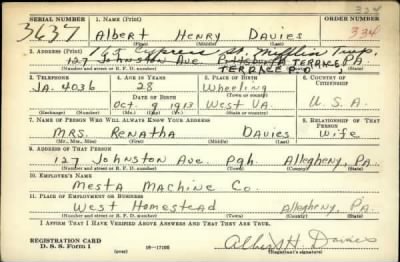 334
SERIAL NUMBER 1. NAME (Print) ORDER NUMBER
3637 Albert Henry Davies 334
(First) (Middle) (Last)
2. ADDRESS (Print) 165 Cypress St. Mifflin Twp.
127 Johnston Ave. Pittsburgh TERRACE, PA.
TERRACE P.O.
(Number and street or R. F. D. number) (Town) (County) (State)
3. TELEPHONE 4. AGE IN YEARS 5. PLACE OF BIRTH 6. COUNTRY OF CITIZENSHIP
JA. 4036 28 Wheeling
DATE OF BIRTH (Town or county)
Oct. 9 1913 West VA. U.S.A.
(Exchange) (Number) (Mo.) (Day) (Yr.) (State or country)
7. NAME OF PERSON WHO WILL ALWAYS KNOW YOUR ADDRESS 8. RELATIONSHIP OF THAT PERSON
MRS. Renatha Davies Wife
(Mr., Mrs., Miss) (First) (Middle) (Last)
9. ADDRESS OF THAT PERSON
127 Johnston Ave. Pgh. Allegheny, PA.
(Number and street or R. F. D. number) (Town) (County) (State)
10. EMPLOYER'S NAME
Mesta Machine Co.
11. PLACE OF EMPLOYMENT OR BUSINESS
West Homestead Allegheny, PA.
(Number and street or R. F. D. number) (Town) (County) (State)
I AFFIRM THAT I HAVE VERIFIED ABOVE ANSWERS AND THAT THEY ARE TRUE.
REGISTRATION CARD
D. S. S. Form 1 (over) 16—17105 Albert H. Davies
(Registrant's signature)